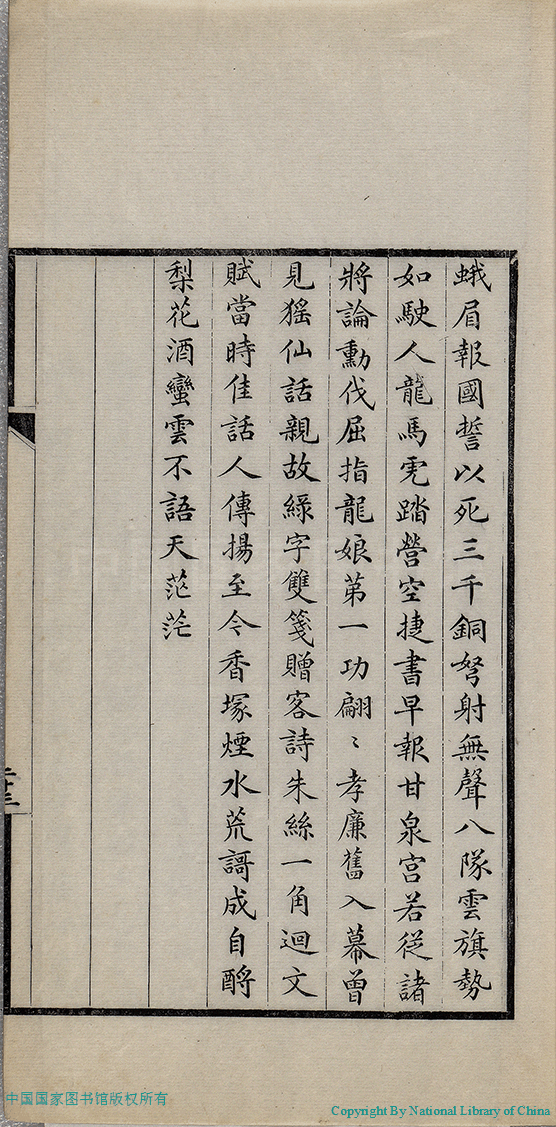 蛾眉報國誓以死三千銅弩射無聲八隊雲旗勢
如駛人龍馬虎踏營空捷書早報甘泉宮若從諸
將論勳伐屈指龍娘第一功翩〻孝廉舊入幕曾
見猺仙話親故綠字雙箋贈客詩朱絲一角迴文
賦當時佳話人傳揚至今香塚煙水荒謌成自酹
梨花酒蠻雲不語天茫茫
二十三
中国国家图书馆版权所有
Copyright By National Library of China